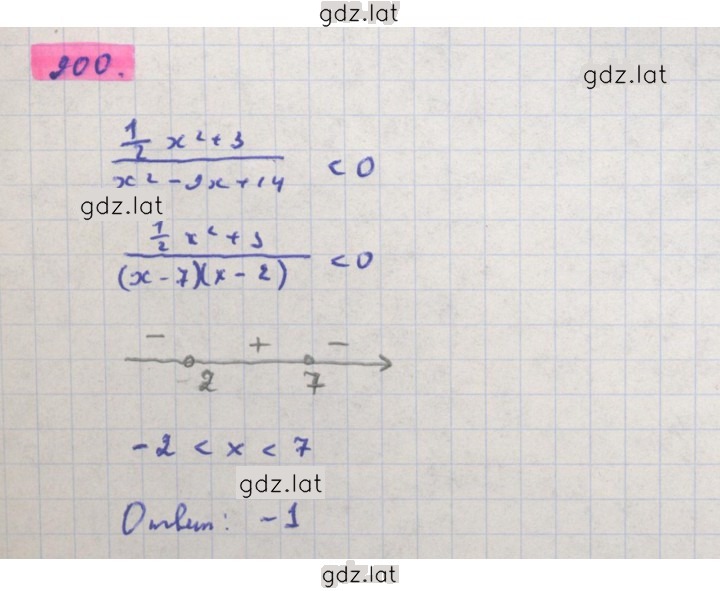 gdz.lat
900.
gdz.lat
1/2 x² + 3
x² - 9x + 14 < 0
gdz.lat
1/2 x² + 3
(x - 7)(x - 2) < 0
- + -
2 7
-2 < x < 7
gdz.lat
Ответ: -1
gdz.lat